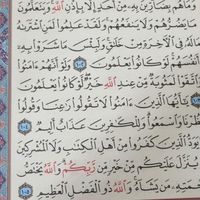 وَمَا هُم بِضَآرِّينَ بِهِ مِنْ أَحَدٍ إِلَّا بِإِذْنِ ٱللَّهِ وَيَتَعَلَّمُونَ
مَا يَضُرُّهُمْ وَلَا يَنفَعُهُمْ وَلَقَدْ عَلِمُوا۟ لَمَنِ ٱشْتَرَىٰهُ
مَا لَهُۥ فِى ٱلْـَٔاخِرَةِ مِنْ خَلَـٰقٍ وَلَبِئْسَ مَا شَرَوْا۟ بِهِۦٓ
أَنفُسَهُمْ لَوْ كَانُوا۟ يَعْلَمُونَ ١٠٢ وَلَوْ أَنَّهُمْ ءَامَنُوا۟
وَٱتَّقَوْا۟ لَمَثُوبَةٌ مِّنْ عِندِ ٱللَّهِ خَيْرٌ لَّوْ كَانُوا۟ يَعْلَمُونَ
يَـٰٓأَيُّهَا ٱلَّذِينَ ءَامَنُوا۟ لَا تَقُولُوا۟ رَٰعِنَا وَقُولُوا۟
ٱنظُرْنَا وَٱسْمَعُوا۟ وَلِلْكَـٰفِرِينَ عَذَابٌ أَلِيمٌ ١٠٤
مَّا يَوَدُّ ٱلَّذِينَ كَفَرُوا۟ مِنْ أَهْلِ ٱلْكِتَـٰبِ وَلَا ٱلْمُشْرِكِينَ
أَن يُنَزَّلَ عَلَيْكُم مِّنْ خَيْرٍ مِّن رَّبِّكُمْ وَٱللَّهُ يَخْتَصُّ
بِرَحْمَتِهِۦ مَن يَشَآءُ وَٱللَّهُ ذُو ٱلْفَضْلِ ٱلْعَظِيمِ